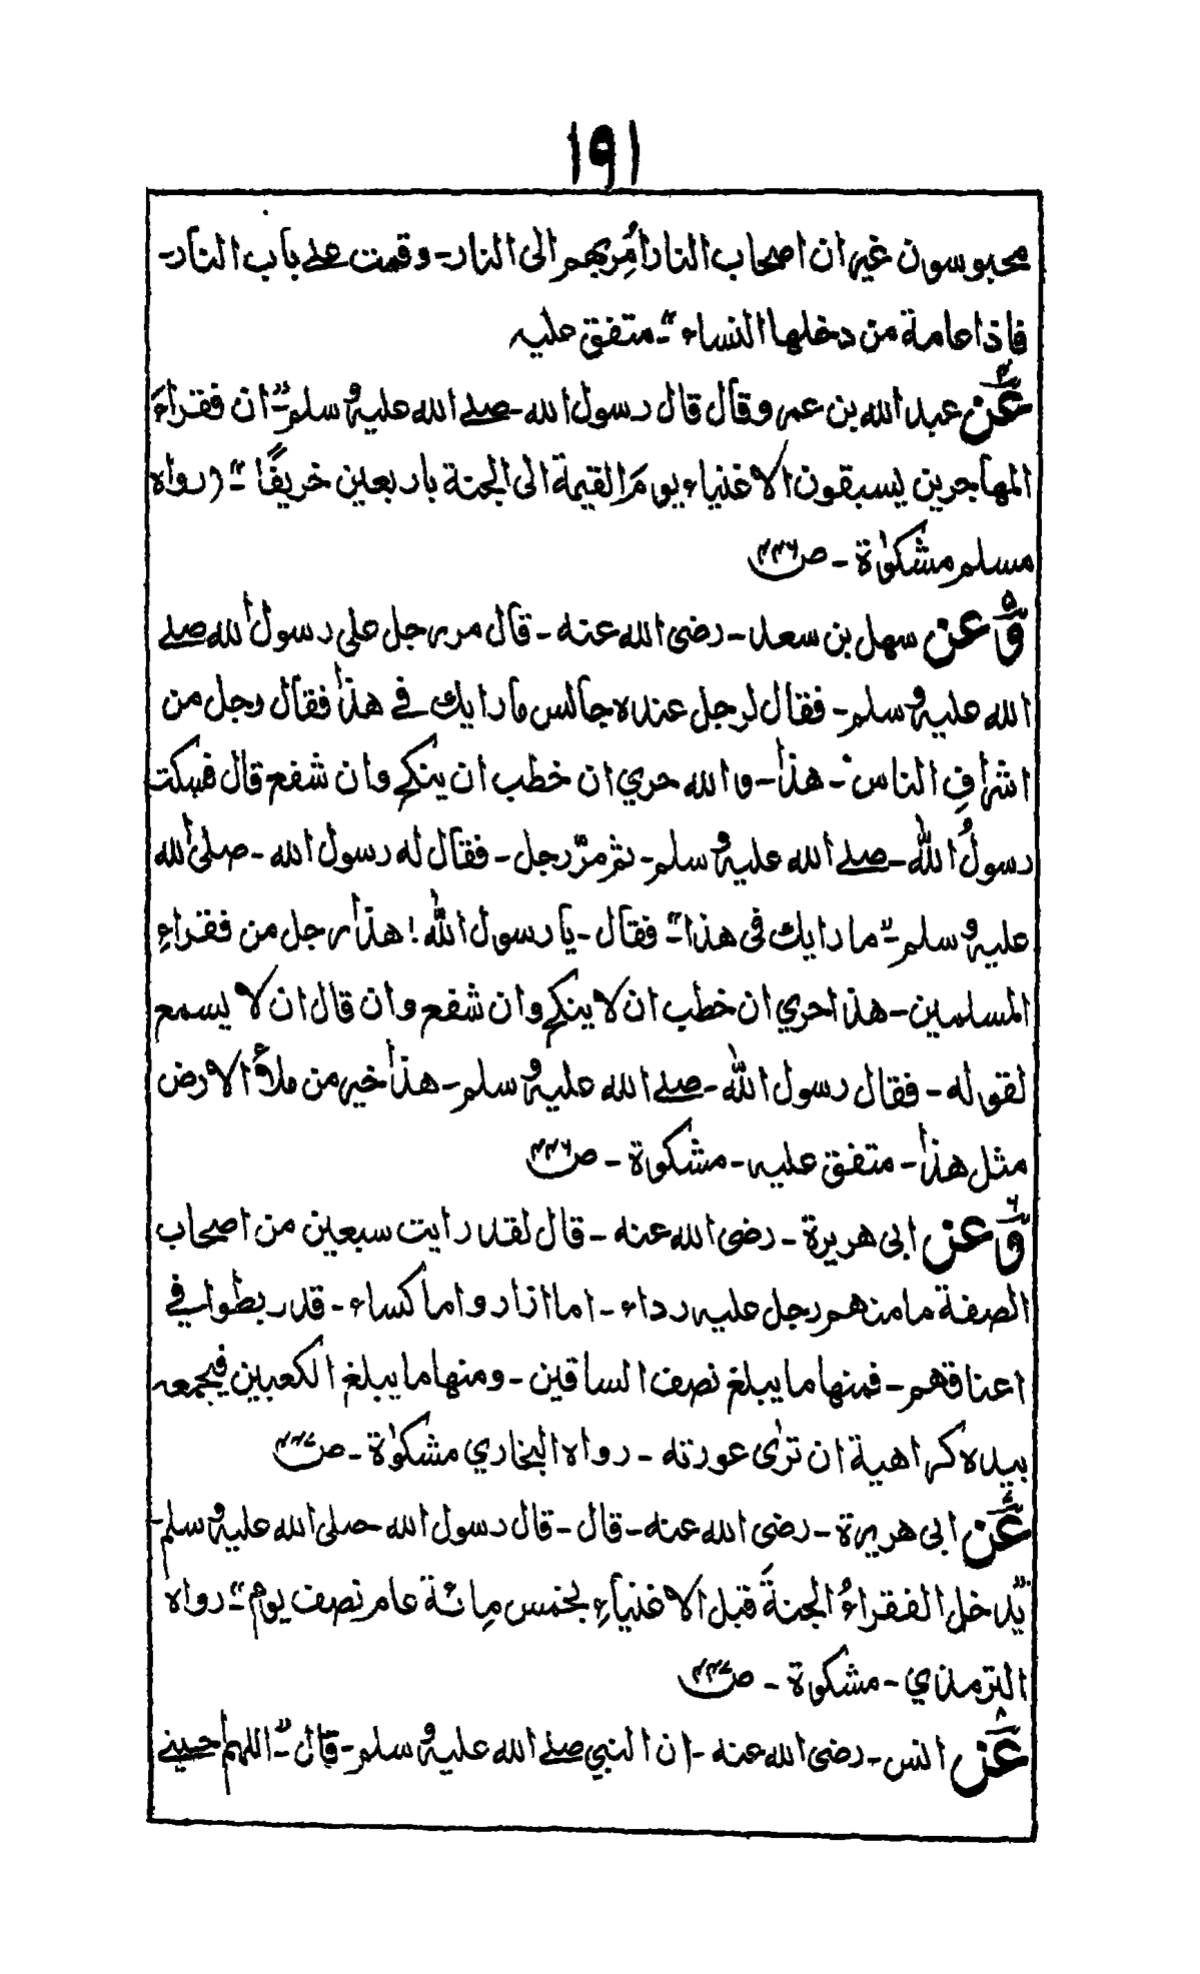 ١٩١
محبوسون غیر ان اصحاب النار اُمِر بھم الی النار۔ وقمت علے باب النار۔
فاذا عامة من دخلھا النساء"۔ متفق علیہ
عن۴ عبد اللہ بن عمرو قال قال رسول اللہ ۔صلے اللہ علیہ وسلم۔ "ان فقراءَ
المھاجرین یسبقون الاغنیاء یومَ القیٰمة الی الجنة باربعین خریفًا"۔ (رواہ
مسلم مشکوٰة ۔ ص۴۴۶
وعن۵ سھل بن سعد ۔ رضی اللہ عنہ ۔ قال مر رجل علی رسول اللہ صلے
اللہ علیہ وسلم ۔ فقال لرجل عندہ جالس ما رایك فے ھذا فقال رجل من
اشرافِ الناس ۔ ھذا ۔ واللہ حري ان خطب ان ینکح وان شفع قال فسکت
رسولُ اللہ ۔ صلے اللہ علیہ وسلم ۔ ثم مرّ رجل ۔ فقال لہ رسول اللہ ۔ صلی اللہ
علیہ وسلم ۔ "ما رایك فی ھذا"۔ فقال ۔ یا رسول اللہ! ھذا رجل من فقراءِ
المسلمین ۔ ھذا حري ان خطب ان لا ینکح وان شفع وان قال ان لا یسمع
لقولہ ۔ فقال رسول اللہ ۔ صلے اللہ علیہ وسلم ۔ ھذا خیر من ملأ الارض
مثل ھذا ۔ متفق علیہ ۔ مشکوة ۔ ص۴۴۶
وعن۶ ابی ھریرة ۔ رضی اللہ عنہ ۔ قال لقد رایت سبعین من اصحاب
الصفة ما منھم رجل علیہ رداء ۔ اما ازار واما کساء ۔ قد ربطوا فے
اعناقھم ۔ فمنھا ما یبلغ نصف الساقین ۔ ومنھا ما یبلغ الکعبین فیجمعہ
بیدہ کراھیة ان ترٰی عورتہ ۔ رواہ البخاري مشکوٰة ۔ ص۴۴۷
عن۷ ابی ھریرة ۔ رضی اللہ عنہ ۔ قال ۔ قال رسول اللہ صلی اللہ علیہ وسلم ۔
"یدخل الفقراءُ الجنةَ قبل الاغنیاءِ بخمس مِائة عام نصف یوم"۔ رواہ
الترمذي ۔ مشکوة ۔ ص۴۴۷
عن۸ انس ۔ رضی اللہ عنہ ۔ ان النبي صلے اللہ علیہ وسلم ۔ قال ۔ "اللھم احیینے